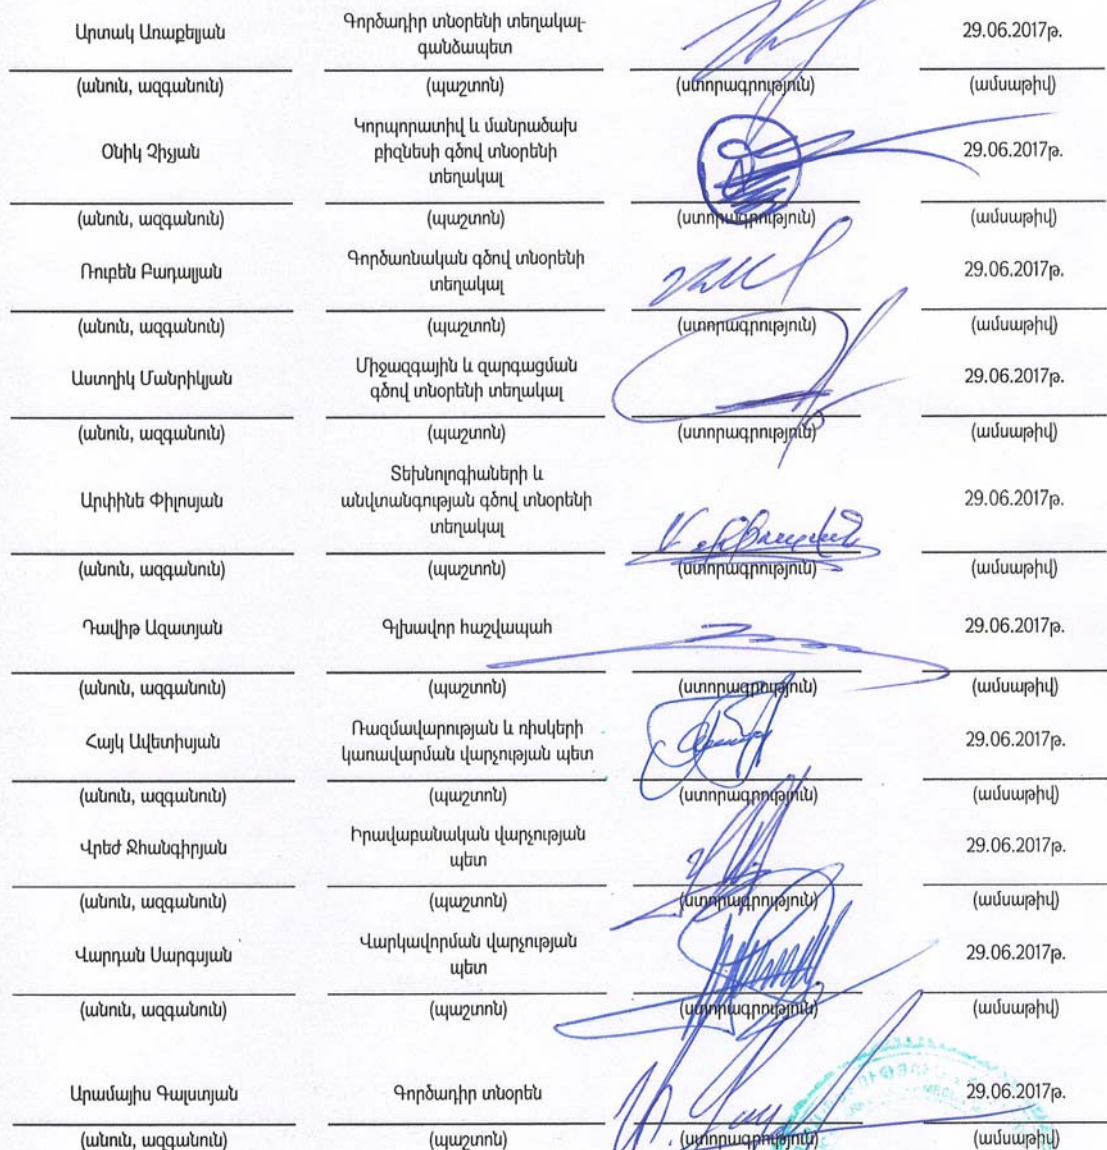 Արտակ Առաքելյան
Գործադիր տնօրենի տեղակալ-
գանձապետ
29.06.2017թ.
(անուն, ազգանուն) (պաշտոն) (ստորագրություն) (ամսաթիվ)
Օնիկ Չիչյան
Կորպորատիվ և մանրածախ
բիզնեսի գծով տնօրենի
տեղակալ
29.06.2017թ.
(անուն, ազգանուն) (պաշտոն) (ստորագրություն) (ամսաթիվ)
Ռուբեն Բադալյան
Գործառնական գծով տնօրենի
տեղակալ
29.06.2017թ.
(անուն, ազգանուն) (պաշտոն) (ստորագրություն) (ամսաթիվ)
Աստղիկ Մանրիկյան
Միջազգային և զարգացման
գծով տնօրենի տեղակալ
29.06.2017թ.
(անուն, ազգանուն) (պաշտոն) (ստորագրություն) (ամսաթիվ)
Արփինե Փիլոսյան
Տեխնոլոգիաների և
անվտանգության գծով տնօրենի
տեղակալ
29.06.2017թ.
(անուն, ազգանուն) (պաշտոն) (ստորագրություն) (ամսաթիվ)
Դավիթ Ազատյան
Գլխավոր հաշվապահ
29.06.2017թ.
(անուն, ազգանուն) (պաշտոն) (ստորագրություն) (ամսաթիվ)
Հայկ Ավետիսյան
Ռազմավարության և ռիսկերի
կառավարման վարչության պետ
29.06.2017թ.
(անուն, ազգանուն) (պաշտոն) (ստորագրություն) (ամսաթիվ)
Վրեժ Ջհանգիրյան
Իրավաբանական վարչության
պետ
29.06.2017թ.
(անուն, ազգանուն) (պաշտոն) (ստորագրություն) (ամսաթիվ)
Վարդան Սարգսյան
Վարկավորման վարչության
պետ
29.06.2017թ.
(անուն, ազգանուն) (պաշտոն) (ստորագրություն) (ամսաթիվ)
Արամայիս Գալստյան
Գործադիր տնօրեն
29.06.2017թ.
(անուն, ազգանուն) (պաշտոն) (ստորագրություն) (ամսաթիվ)